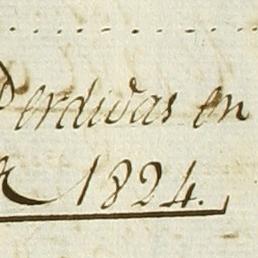 Perdidas en
1824.